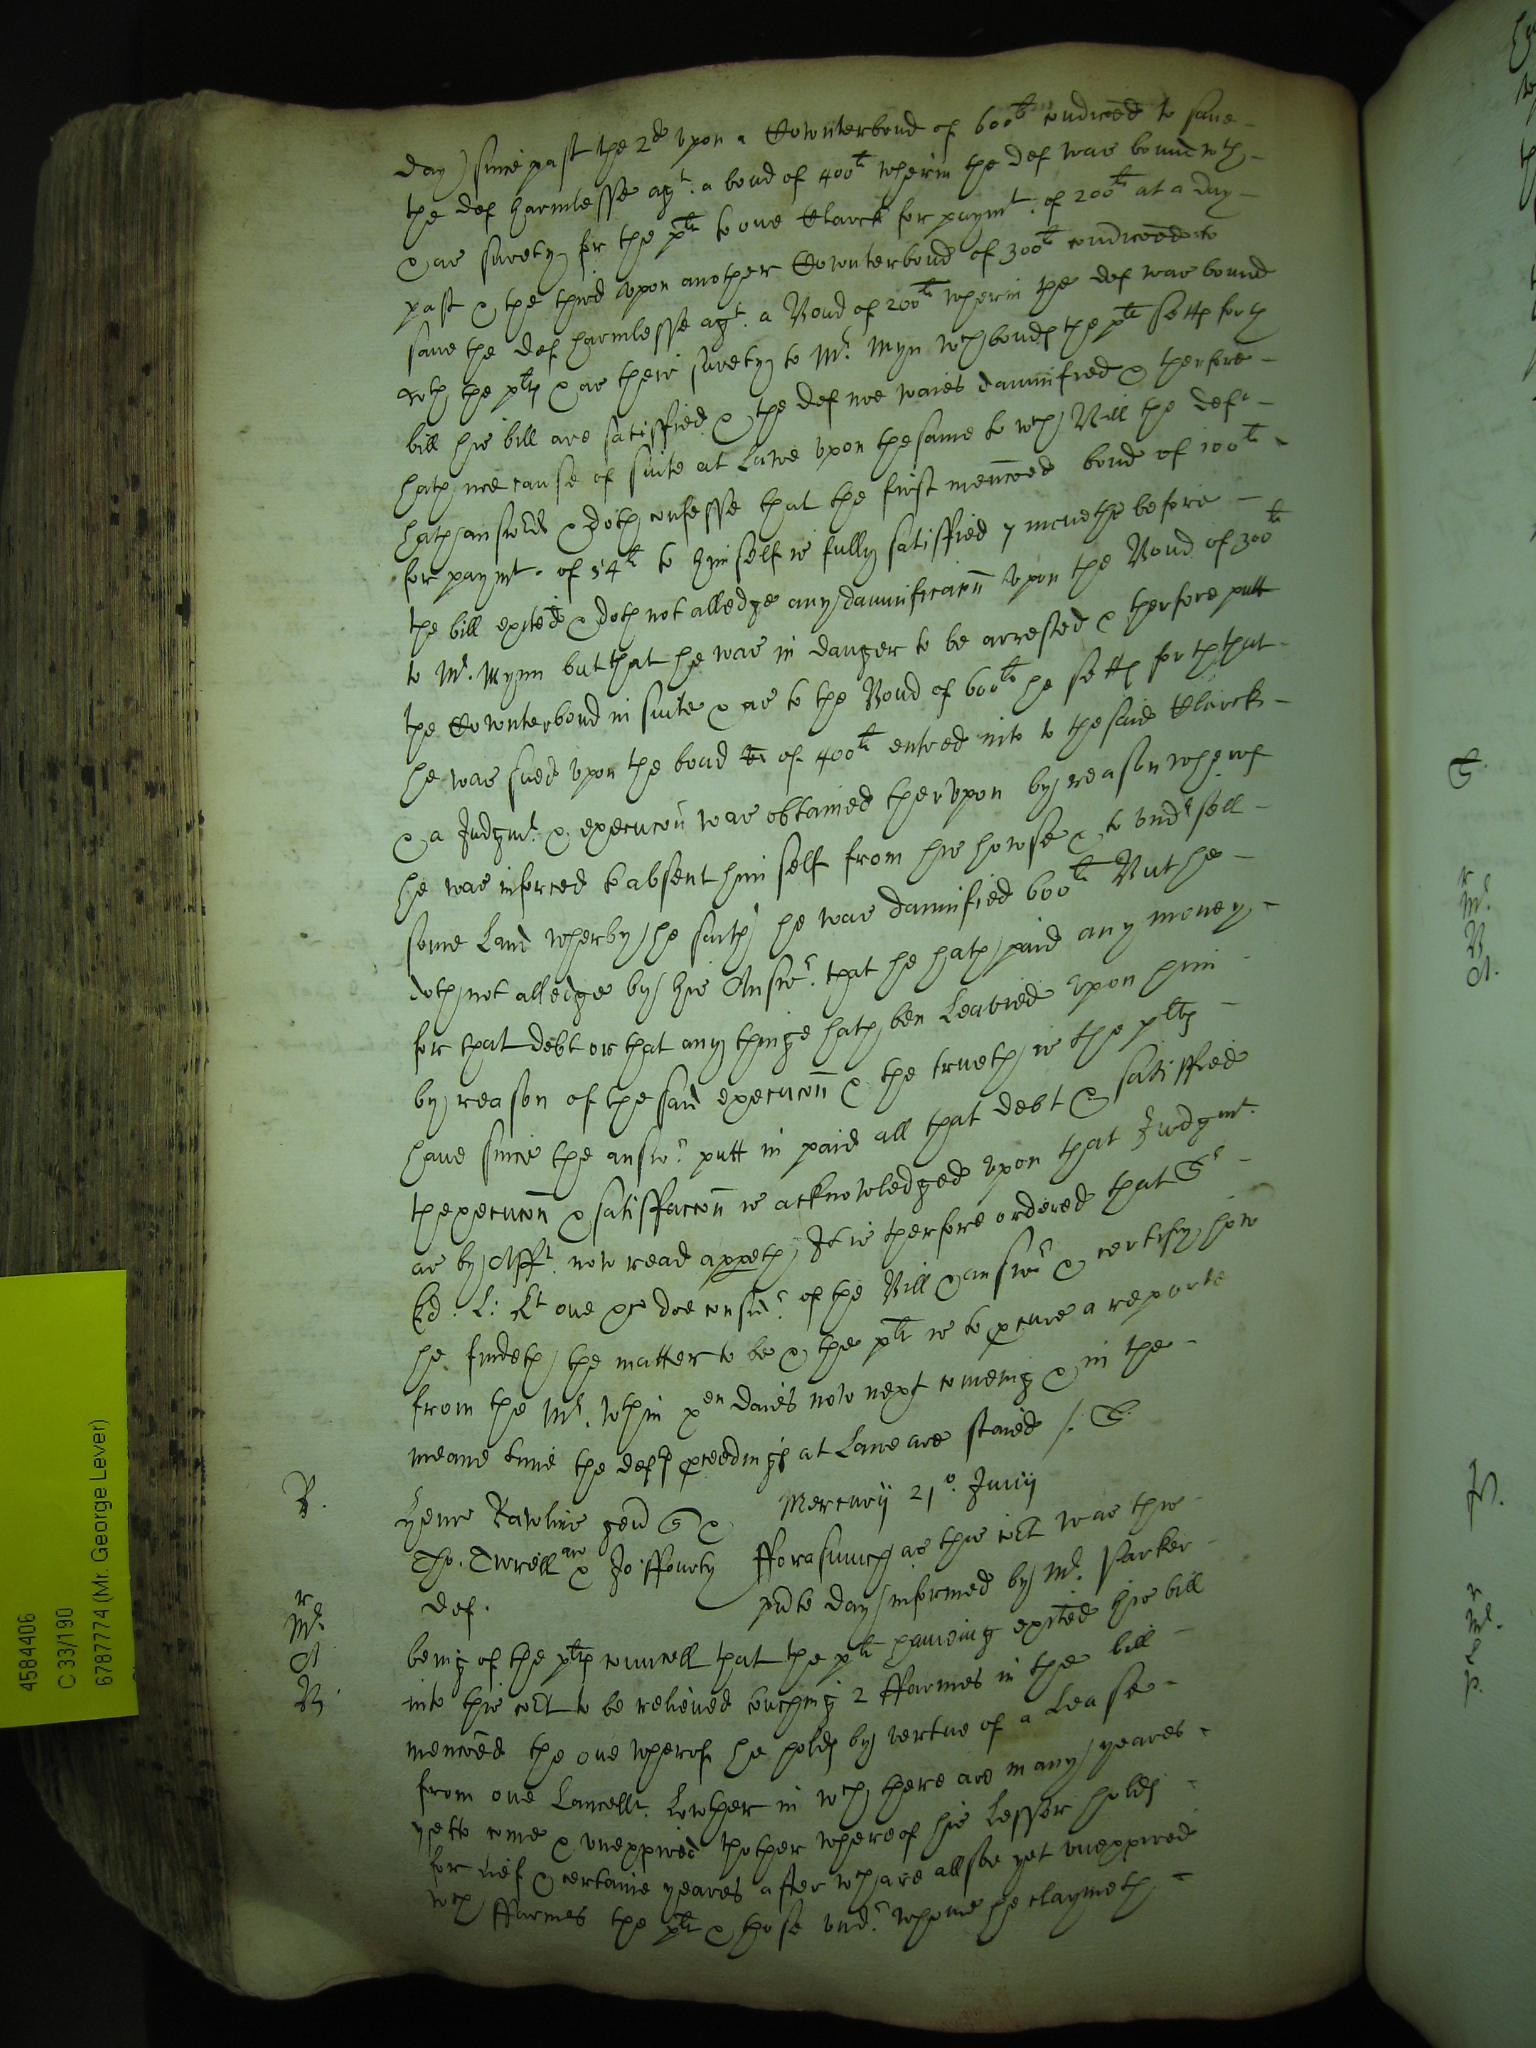 day) since past the 2d vpon a Cownterbond of 600li condiconed to save
the def harmlesse agt. a bond of 400li wherin the def was bound wth
& as surety for the plt to one Clarck for paymt. of 200li at a day
past & the third vpon another Cownterbond of 300li condiconed to
save the def harmlesse agt. a Bond of 200li wherin the def was bound
wth the plts & as their surety to Mr. Myn wch bonds the plt setts forth
bill his bill are satisfied & the def noe waies damnified & therfore
hath noe cause of suite at Lawe vpon the same to wch Bill the deft
hath answered & doth confesse that the first menconed bond of 100li
for paymt. of 54li to himself is fully satisfied 7 moneths before
the bill exited & doth not alledge any damnificacon vpon the Bond of 300li
to Mr. Mynn but that he was in danger to be arrested & therfore putt
the Cownterbond in suite & as to the Bond of 600li he setts forth that
he was sued vpon the bond of 400li entred into to the said Clarck
& a Judgmt. & execucon was obtained thervpon by reason wherof
he was inforced to absent himself from his howse & to vndrsell
some Land wherby he saith he was damnified 600li But he
doth not alledge by his Answr. that he hath paid any money
for that debt or that any thinge hath ben Leavied vpon him
by reason of the said execucon & the trueth is the plts
have since the answr. putt in paid all that debt & satisfied
thexecucon & satisfaccon is acknowledged vpon that Judgmt.
as by Afft. now read appeth It is therfore ordered that Sr
Ed. L: Kt one &c doe considr. of the Bill & answr & certify how
he findeth the matter to be & the plt is to pcure a reporte
from the Mr. wthin xen daies now next comeing & in the
meane time the defts pceedings at Lawe are staied /.
Mercurij 21o. Junij
B.
Henr Rawlins gen &
Tho. Tirrell ar & Jo: ffourty
def.
fforasmuch as this cort was this
pnte day informed by Mr. Parker
r
Mr.
A
B.
being of the plts councell that the plt haveing exited his bill
into this cort to be relieved touching 2 ffarmes in the bill
menconed the one wherof he holds by vertue of a Lease
from one Lancellt. Lowther in wch there are many yeares
yett to come & vnexpired thother whereof his Lessor holds
for lief & certaine yeares after wch are allsoe yet vnexpired
wch ffarmes the plt & those vndr. whome he claymeth
4584406
C 33/190
6787774 (Mr. George Lever)
r
Mr.
B
A.
r
Mr.
L
p.